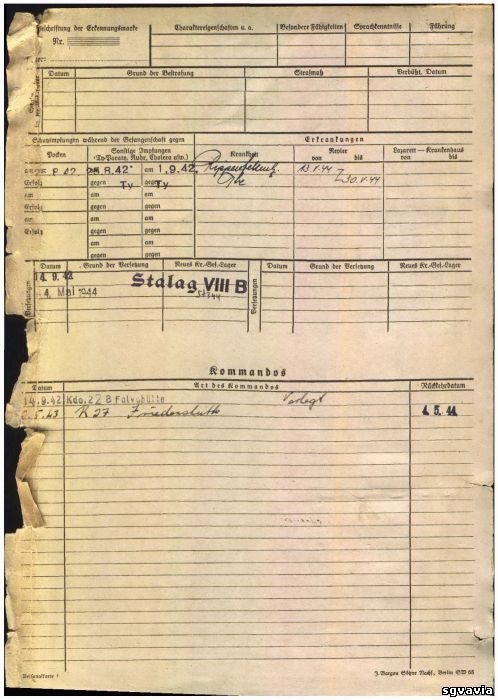 Beschriftung der Erkennungsmarke
Nr.
Charaktereigenschaften u. a.
Besondere Fähigkeiten
Sprachkenntnisse
Führung
Datum
Grund der Bestrafung
Strafmaß
Verbüßt, Datum
Schutzimpfungen während der Gefangenschaft gegen
Erkrankungen
Pocken
Sonstige Impfungen
(Ty-Paraty, Ruhr, Cholera usw.)
Krankheit
Revier
von bis
Lazarett — Krankenhaus
von bis
am 1.9.42.
13.V.44
30.V.44
Erfolg gegen Ty gegen Ty
am am am
Erfolg gegen gegen
am am am
Erfolg gegen gegen
am am
gegen gegen
Datum
Grund der Versetzung
Neues Kr.-Gef.-Lager
Versetzungen
Datum
Grund der Versetzung
Neues Kr.-Gef.-Lager
14.9.42
Stalag VIII B
4. Mai 1944
344
Kommandos
Datum
Art des Kommandos
Rückkehrdatum
14.9.42 Kdo. 22 B Falvahütte Verlegt
.5.43 K 27 Friedenshütte
4.5.44
Personalkarte I
J. Bargou Söhne Nachf., Berlin SW 68
sgvavia